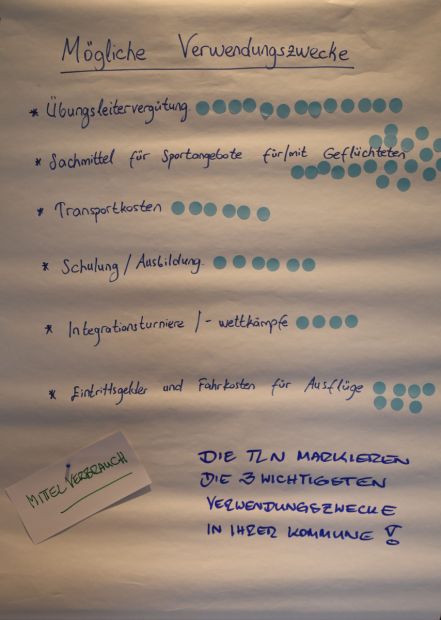 Mögliche Verwendungszwecke
* Übungsleitervergütung
* Sachmittel für Sportangebote für/mit Geflüchteten
* Transportkosten
* Schulung/Ausbildung
* Integrationsturniere /-wettkämpfe
* Eintrittsgelder und Fahrkosten für Ausflüge
MITTELVERBRAUCH
DIE TLN MARKIEREN
DIE 3 WICHTIGSTEN
VERWENDUNGSZWECKE
IN IHRER KOMMUNE !